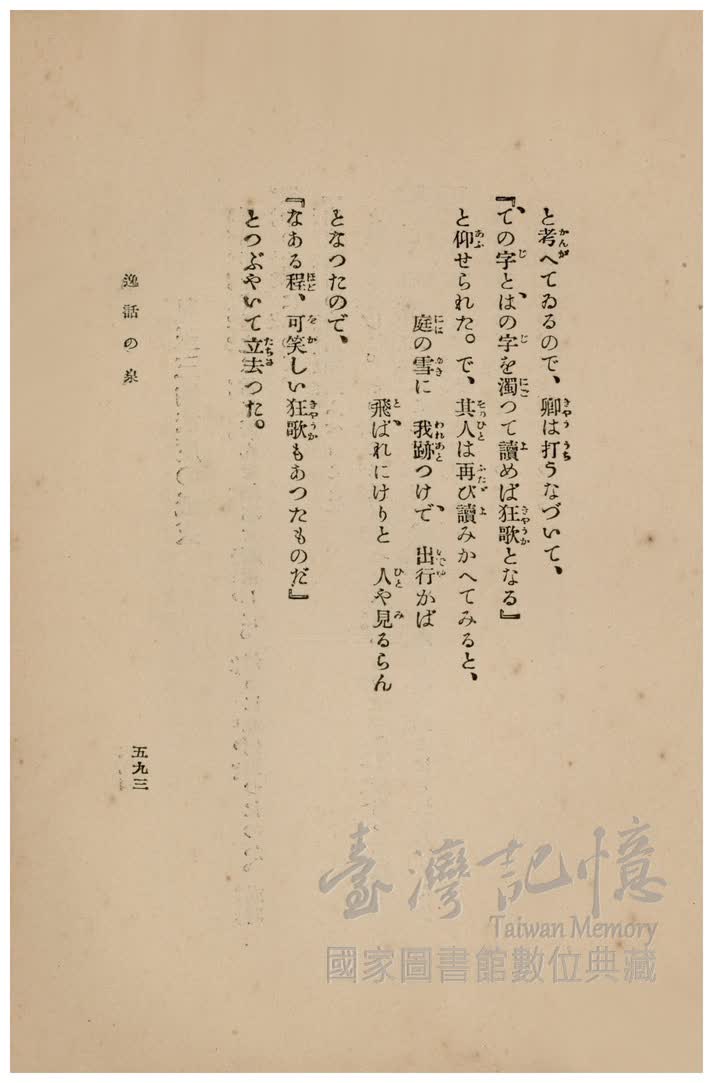 と考へてゐるので、卿は打うなづいて、
『ての字とはの字を濁つて讀めば狂歌となる』
と仰せられた。で、其人は再び讀みかへてみると、
庭の雪に 我跡つけで、 出行かば
飛ばれにけりと 人や見るらん
となつたので、
『なある程、可笑しい狂歌もあつたものだ』
とつぶやいて立去つた。
逸話の泉
五九三
臺灣記憶
Taiwan Memory
國家圖書館數位典藏